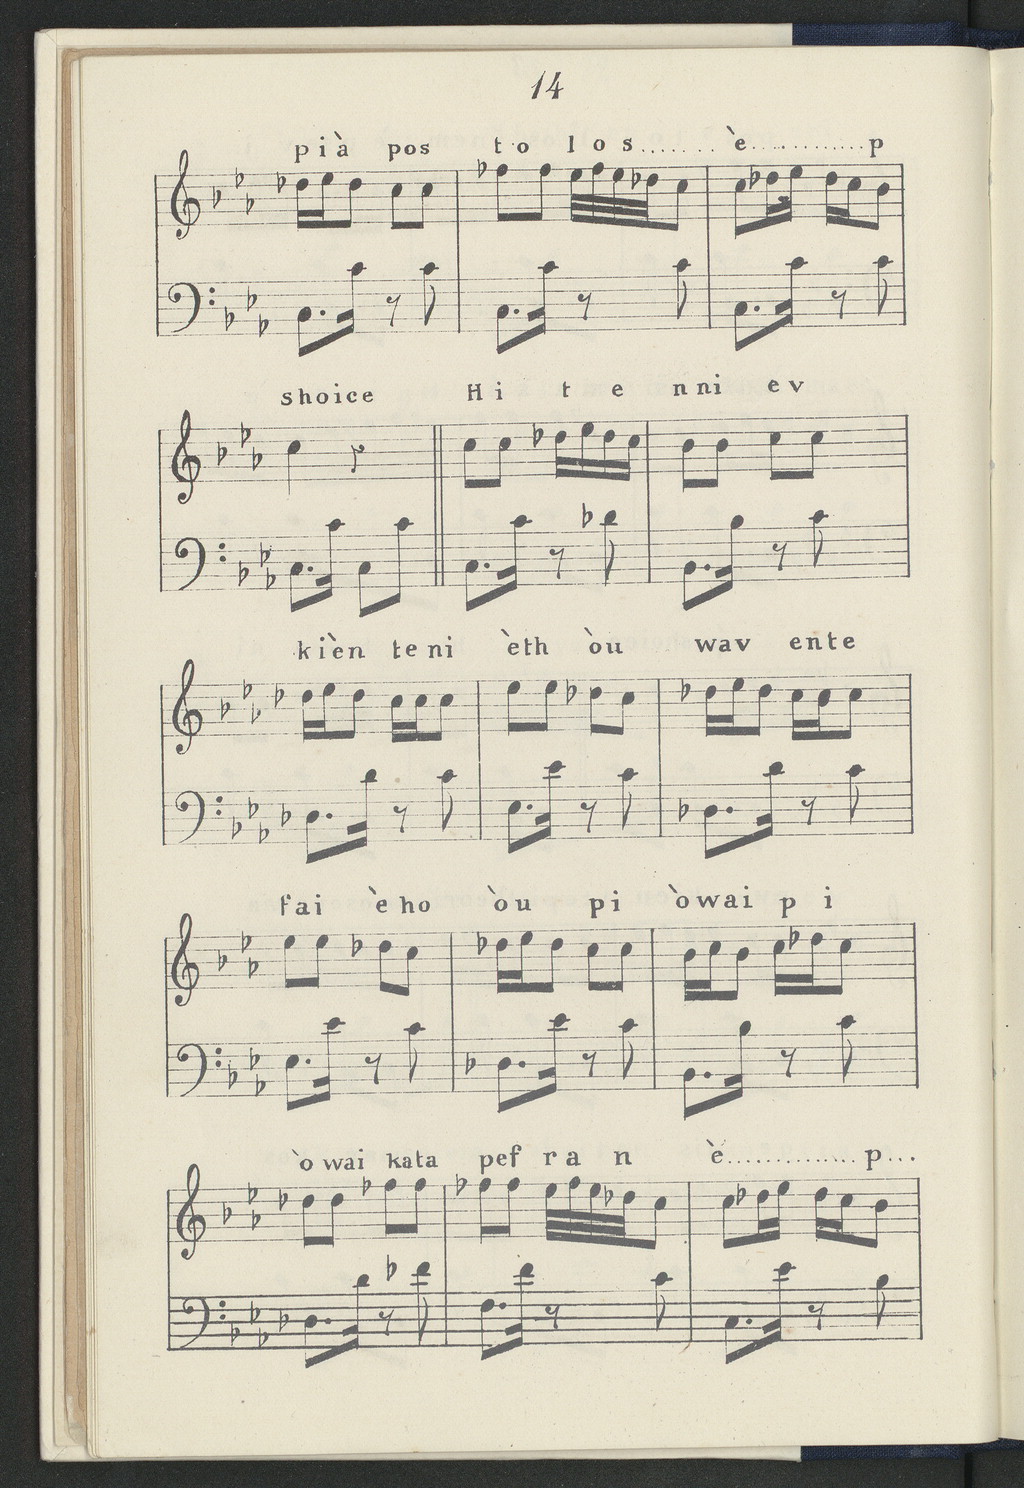 14
pià pos to los....... è............p
shoice Hi t e nni ev
kièn teni èth òu wav ente
fai èho òu pi òwai p i
òwai kata pef ran è.............p...